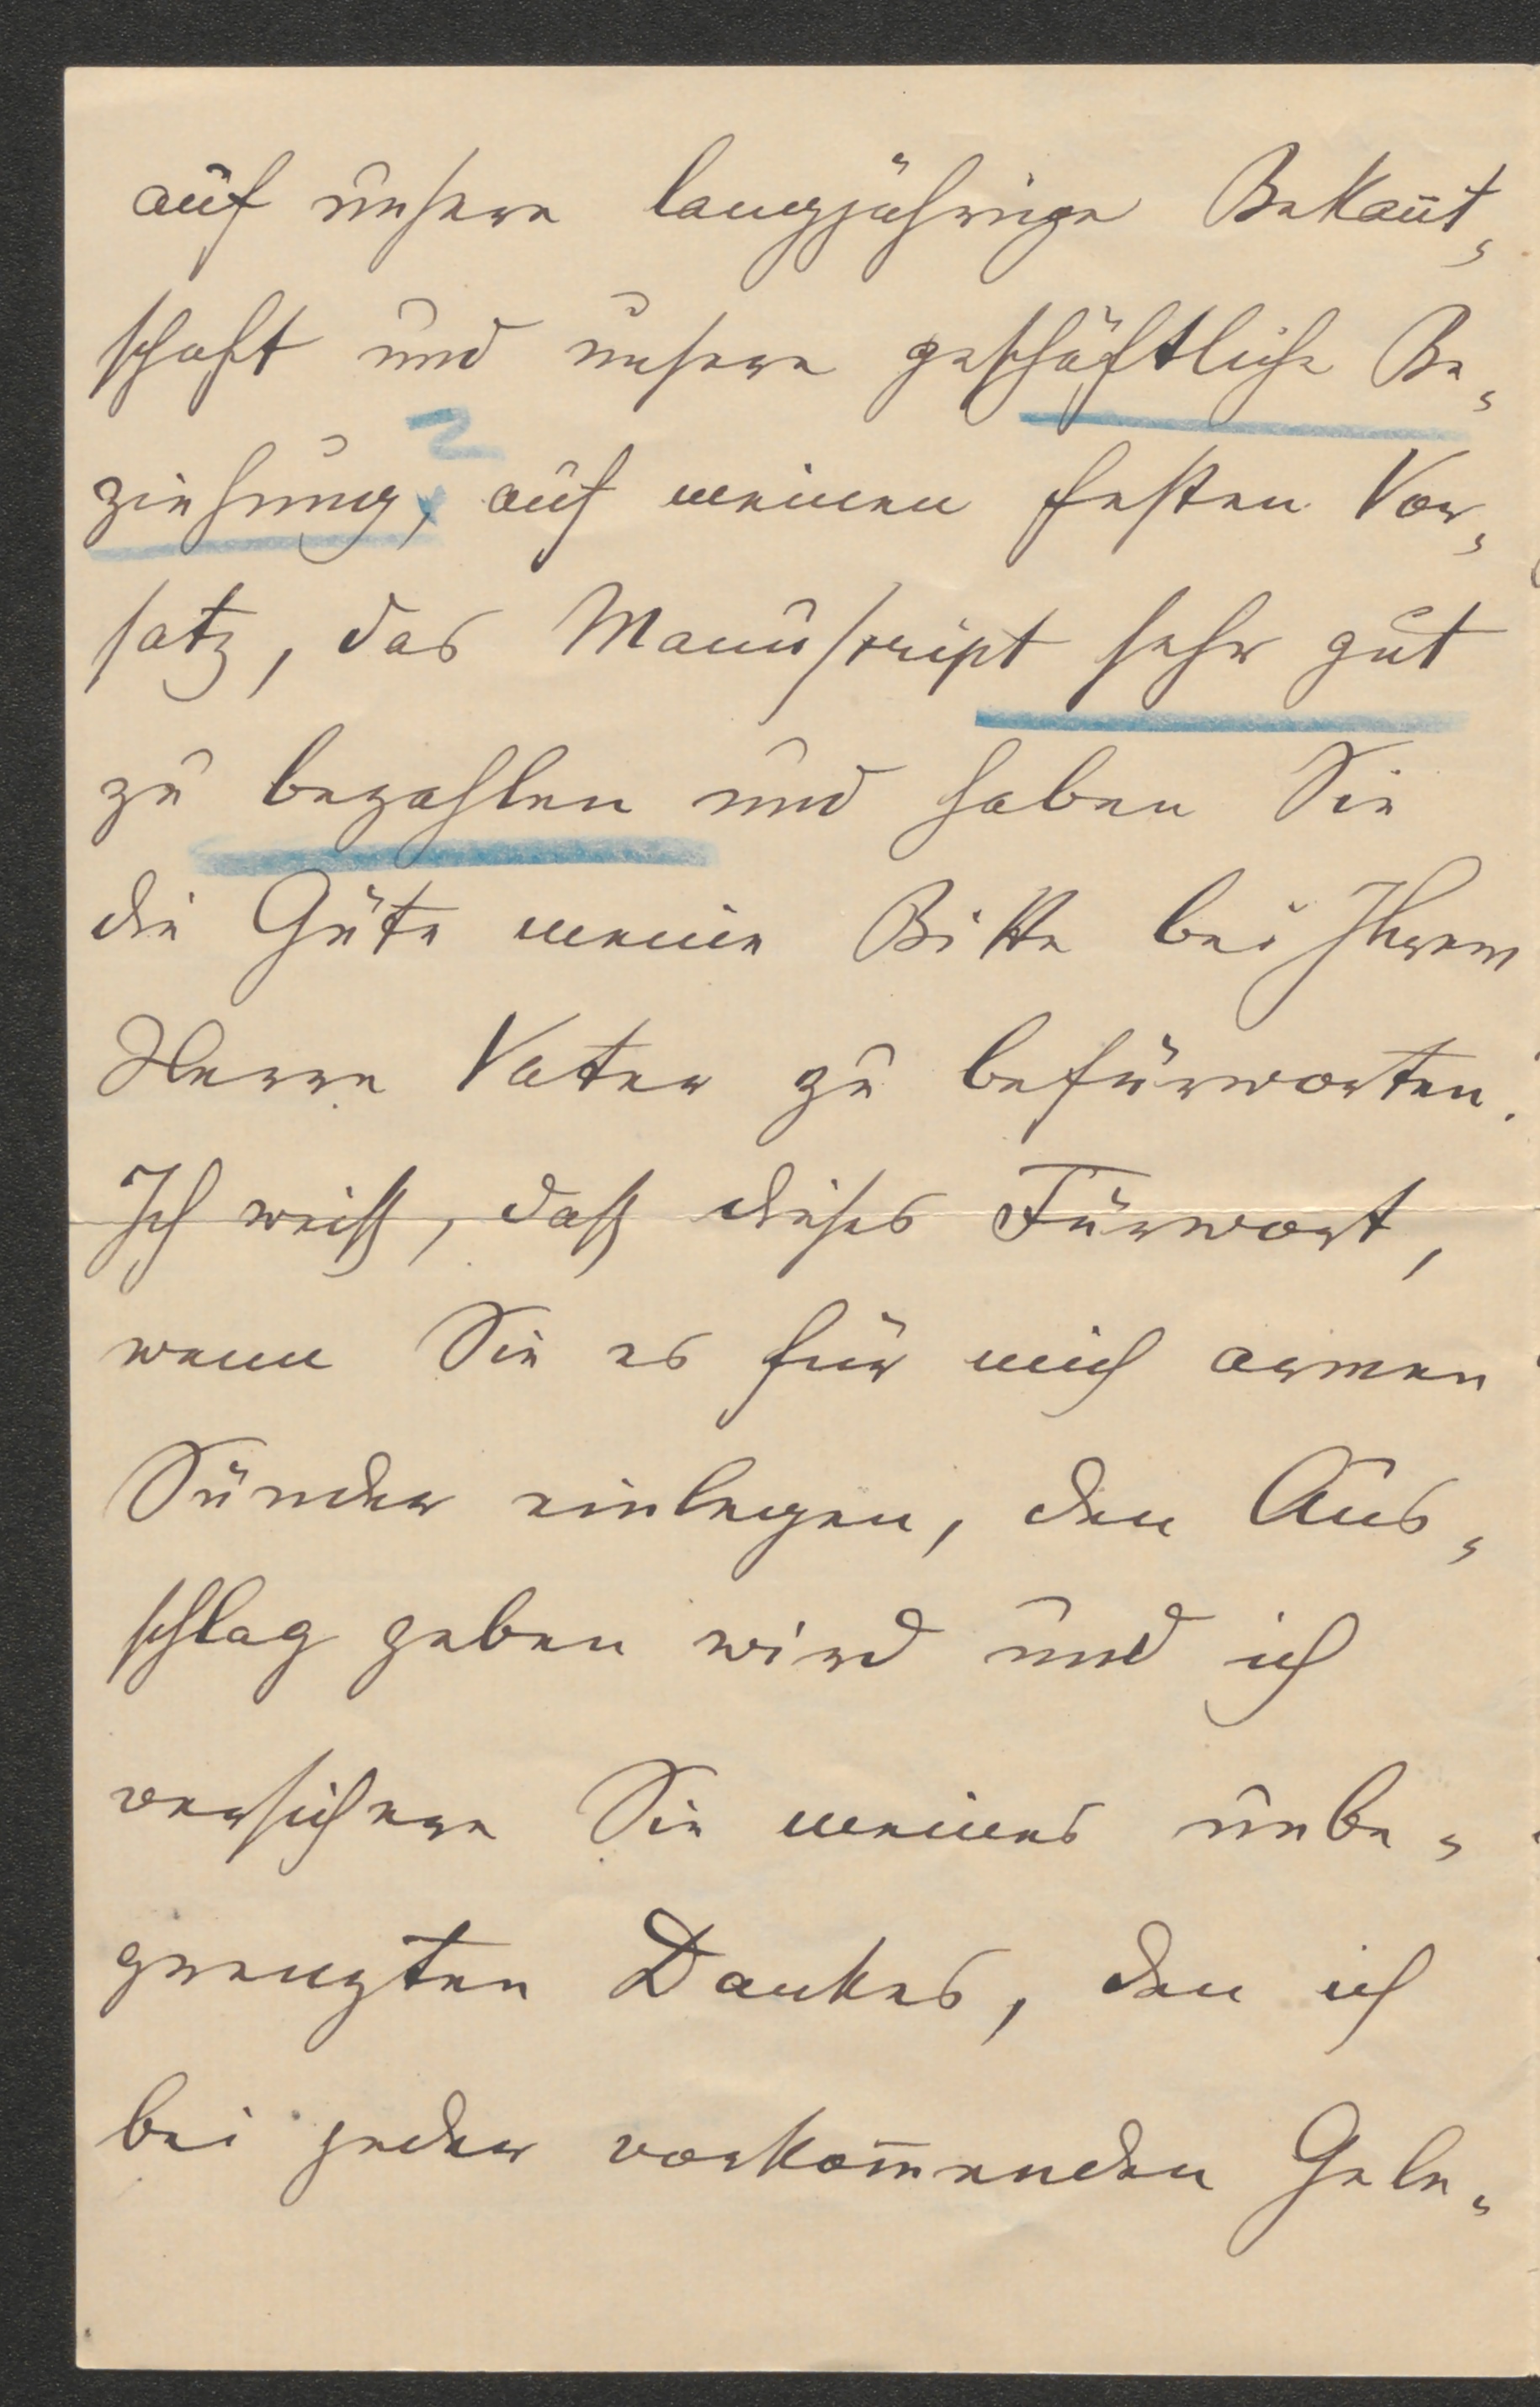 auf unsere langjährige Bekan̄t-
schaft und unsere geschäftliche Be-
ziehung, auf meinen festen Vor-
satz, das Manuskript sehr gut
zu bezahlen und haben Sie
die Güte meine Bitte bei Ihrem
Herrn Vater zu befürworten.
Ich weiß, daß dieses Fürwort,
wenn Sie es für mich armen
Sünder einlegen, den Aus-
schlag geben wird und ich
versichere Sie meines unbe-
grenzten Dankes, den ich
bei jeder vorkom̄enden Gele-